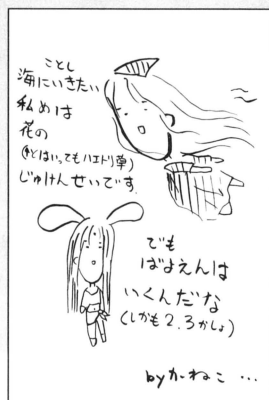 ことし
海にいきたい
私めは
花の
(花とはいってもハエトリ草)
じゅけんせいです
でも
ばよえ〜んは
いくんだな
(しかも2.3かしょ)
byかねこ …